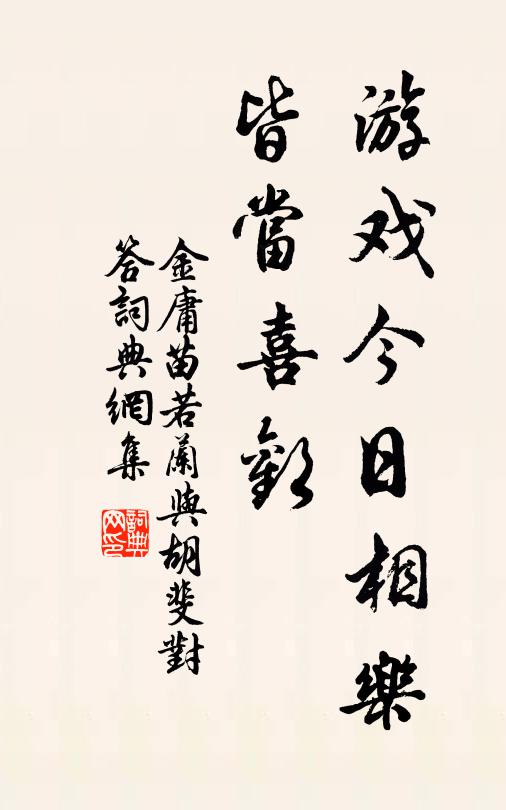 游戏今日相樂
皆當喜歡
金庸苗若蘭與胡斐對
答詞典網集
詞典
网印